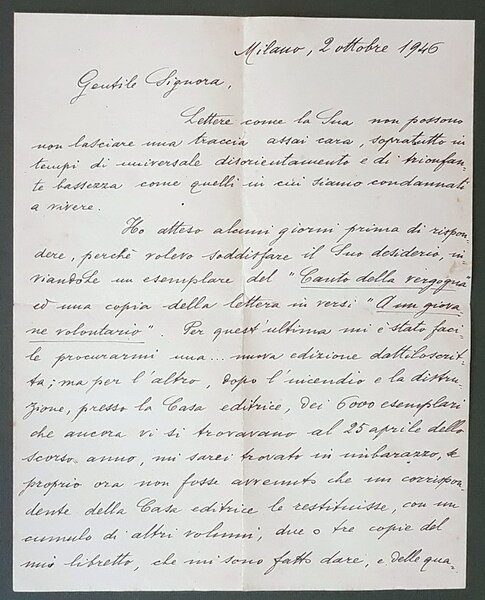 Milano, 2 ottobre 1946
Gentile Signora,
Lettere come la Sua non possono
non lasciare una traccia assai cara, sopratutto in
tempi di universale disorientamento e di trionfan-
te bassezza come quelli in cui siamo condannati
a vivere.
Ho atteso alcuni giorni prima di rispon-
dere, perchè volevo soddisfare il Suo desiderio, in-
viandole un esemplare del "Canto della vergogna"
ed una copia della lettera in versi "A un giova-
ne volontario". Per quest'ultima mi è stato faci-
le procurarmi una... nuova edizione dattiloscrit-
ta; ma per l'altro, dopo l'incendio e la distru-
zione, presso la Casa editrice, dei 6000 esemplari
che ancora vi si trovavano al 25 aprile dello
scorso anno, mi sarei trovato in imbarazzo, se
proprio ora non fosse avvenuto che un corrispon-
dente della Casa editrice le restituisse, con un
cumulo di altri volumi, due o tre copie del
mio libretto, che mi sono fatto dare, e delle qua-